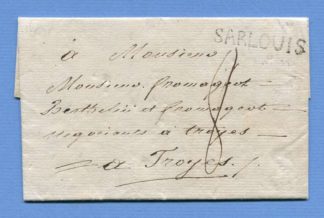 SARLOUIS
à Monsieur
Monsieur fromageot
Berthelin et fromageot
negociants à troyes
a Troyes
8